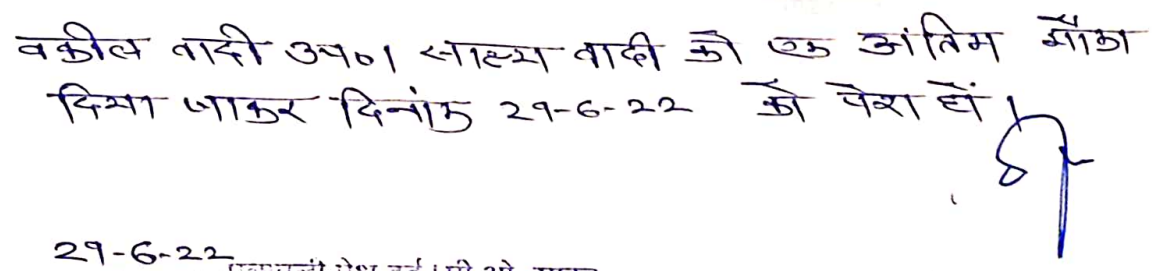 वकील वादी उप०। साक्ष्य वादी को एक अंतिम मौका
दिया जाकर दिनांक 29-6-22 को पेश हों।
29-6-22